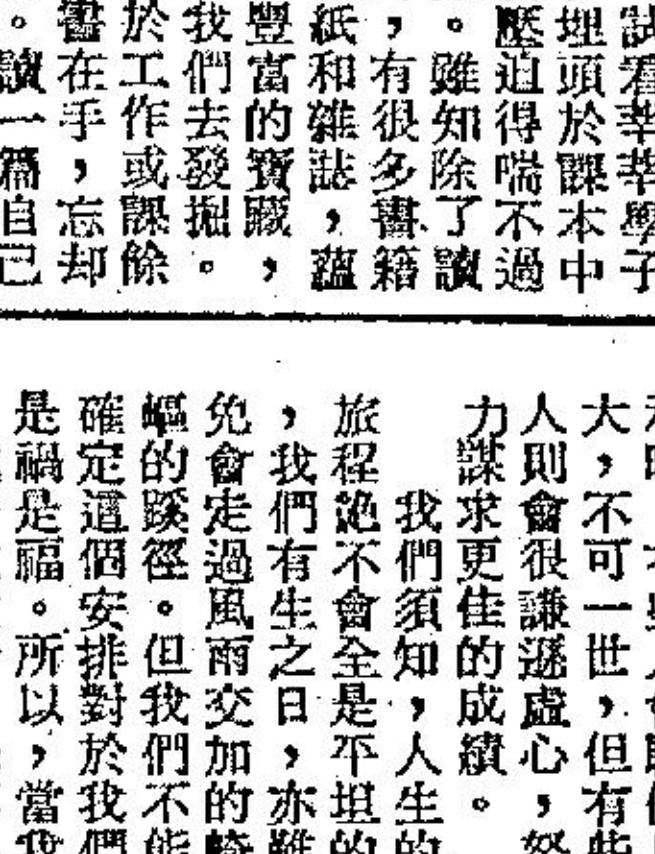 試看莘莘學子
埋頭於課本中
壓迫得喘不過
。雖知除了讀
，有很多書籍
紙和雜誌，蘊
豐富的寶藏，
我們去發掘。
於工作或課餘
書在手，忘却
。讀一篇自己
大，不可一世，但有些
人則會很謙遜虛心，努
力謀求更佳的成績。
我們須知，人生的
旅程絕不會全是平坦的
，我們有生之日，亦難
免會走過風雨交加的崎
嶇的蹊徑。但我們不能
確定這個安排對於我們
是禍是福。所以，當我